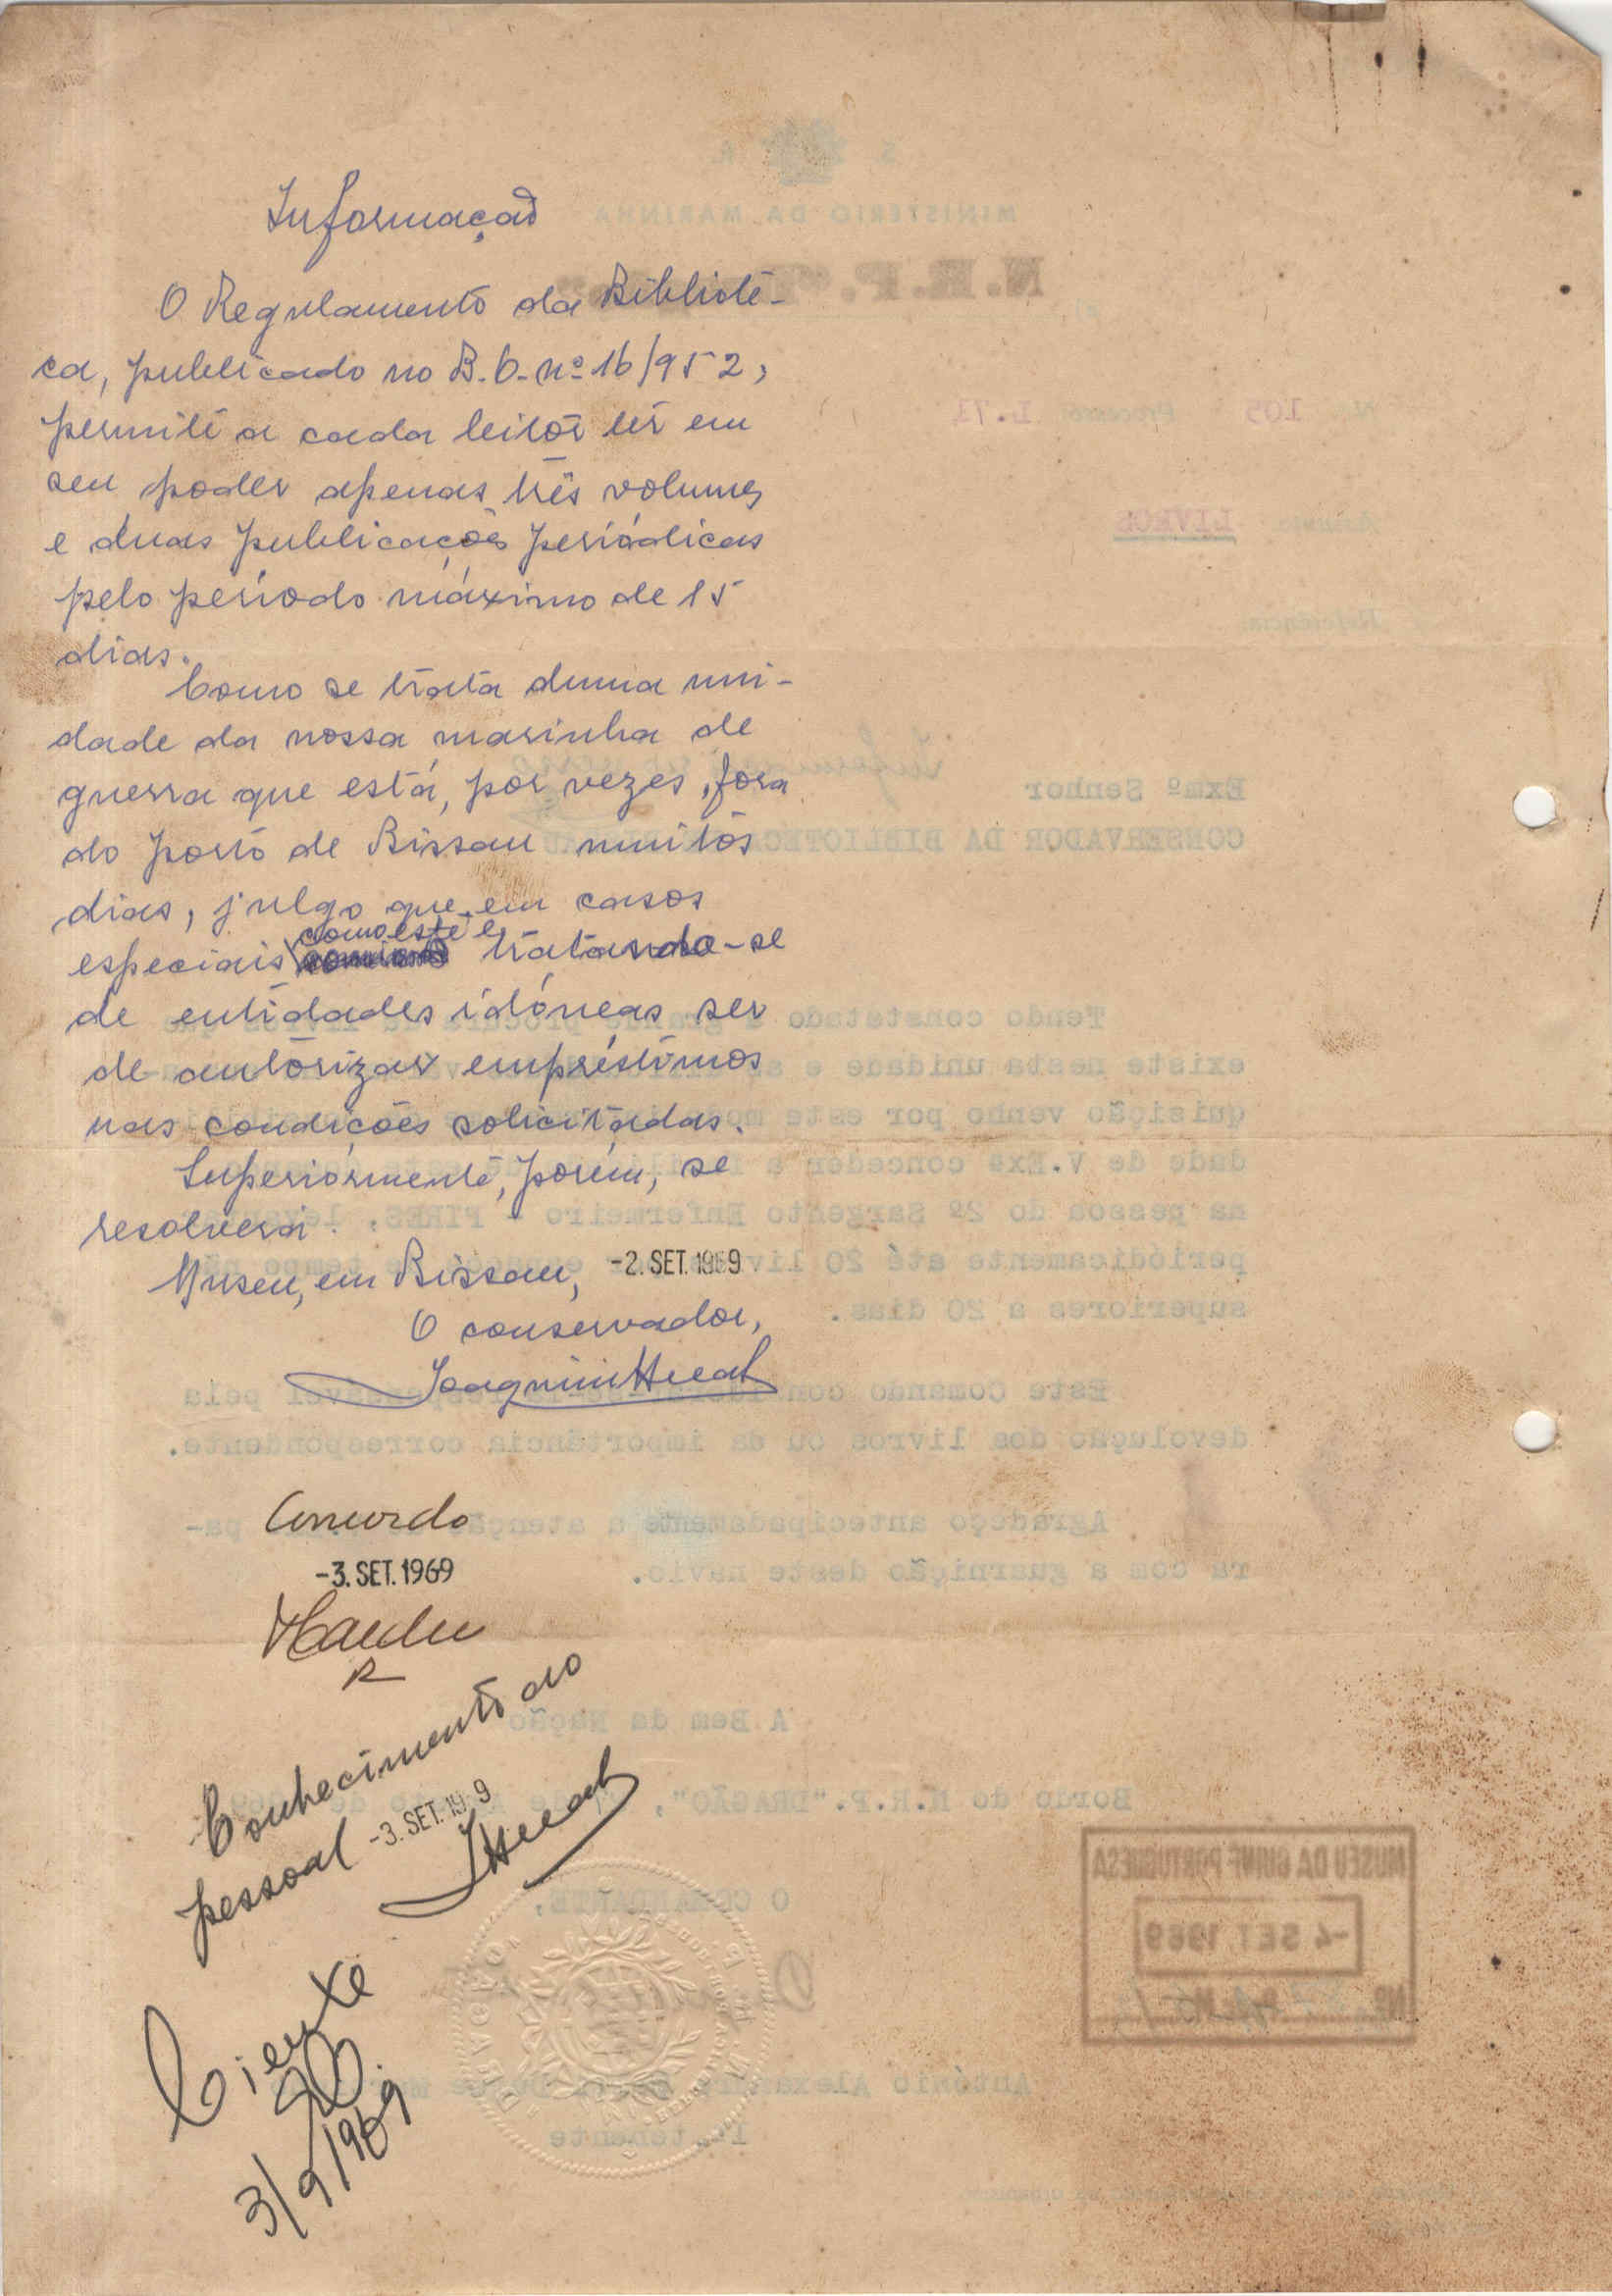 Informação
O Regulamento da Bibliote-
ca, publicado no B.O. nº 16/952,
permite a cada leitor ter em
seu poder apenas três volumes
e duas publicações periódicas
pelo período máximo de 15
dias.
Como se trata duma uni-
dade da nossa marinha de
guerra que está, por vezes, fora
do porto de Bissau muitos
dias, julgo que em casos
como este e
especiais tratando-se
de entidades idóneas ser
de autorizar empréstimos
nas condições solicitadas.
Superiormente, porém, se
resolverá.
Museu, em Bissau, -2. SET. 1969
O conservador,
Concordo
-3. SET. 1969
Conhecimento ao
pessoal -3. SET. 19 9
Ciente
3/9/1969
DRAGÃO
S. R.
MINISTÉRIO DA MARINHA
N.R.P.
Nº 105 Processo L.71
Assunto LIVROS
Referência:
Exmº Senhor
CONSERVADOR DA BIBLIOTECA
Tendo constatado a grande procura
existe nesta unidade e
quisição venho por este
dade de V.Exª conceder a
na pessoa do 2º Sargento Enfermeiro - PIRES,
periódicamente até 20 tempo não
superiores a 20 dias.
Este Comando pela
devolução dos livros ou da importância correspondente.
Agradeço antecipadamente a atenção pa-
ra com a guarnição deste navio.
A Bem da Nação
Bordo do N.R.P. "DRAGÃO",
O COMANDANTE,
António
1º. tenente
MUSEU DA GUINÉ PORTUGUESA
-4 SET 1969